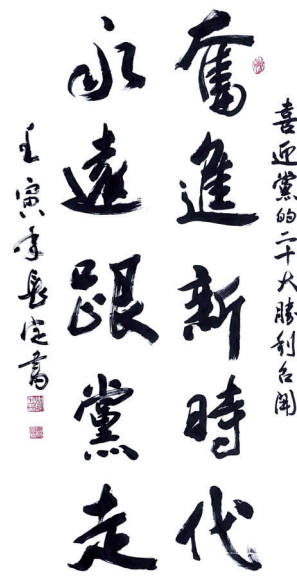 喜迎黨的二十大勝利召開
奮進新時代
永遠跟黨走
壬寅年長定書